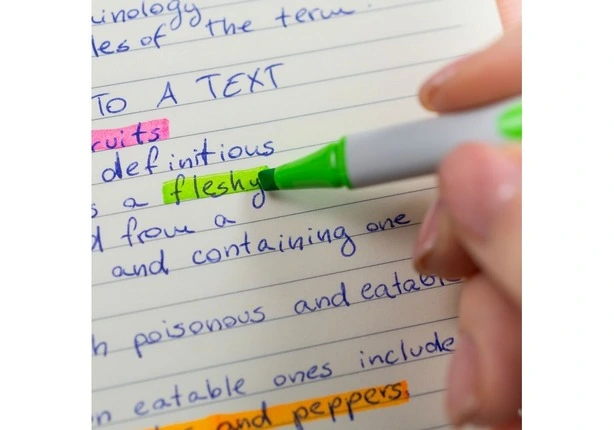 inology
les of the term.
TO A TEXT
cuits
definitious
s a fleshy
d from a
and containing one
h poisonous and eatabl
n eatable ones include
and peppers.